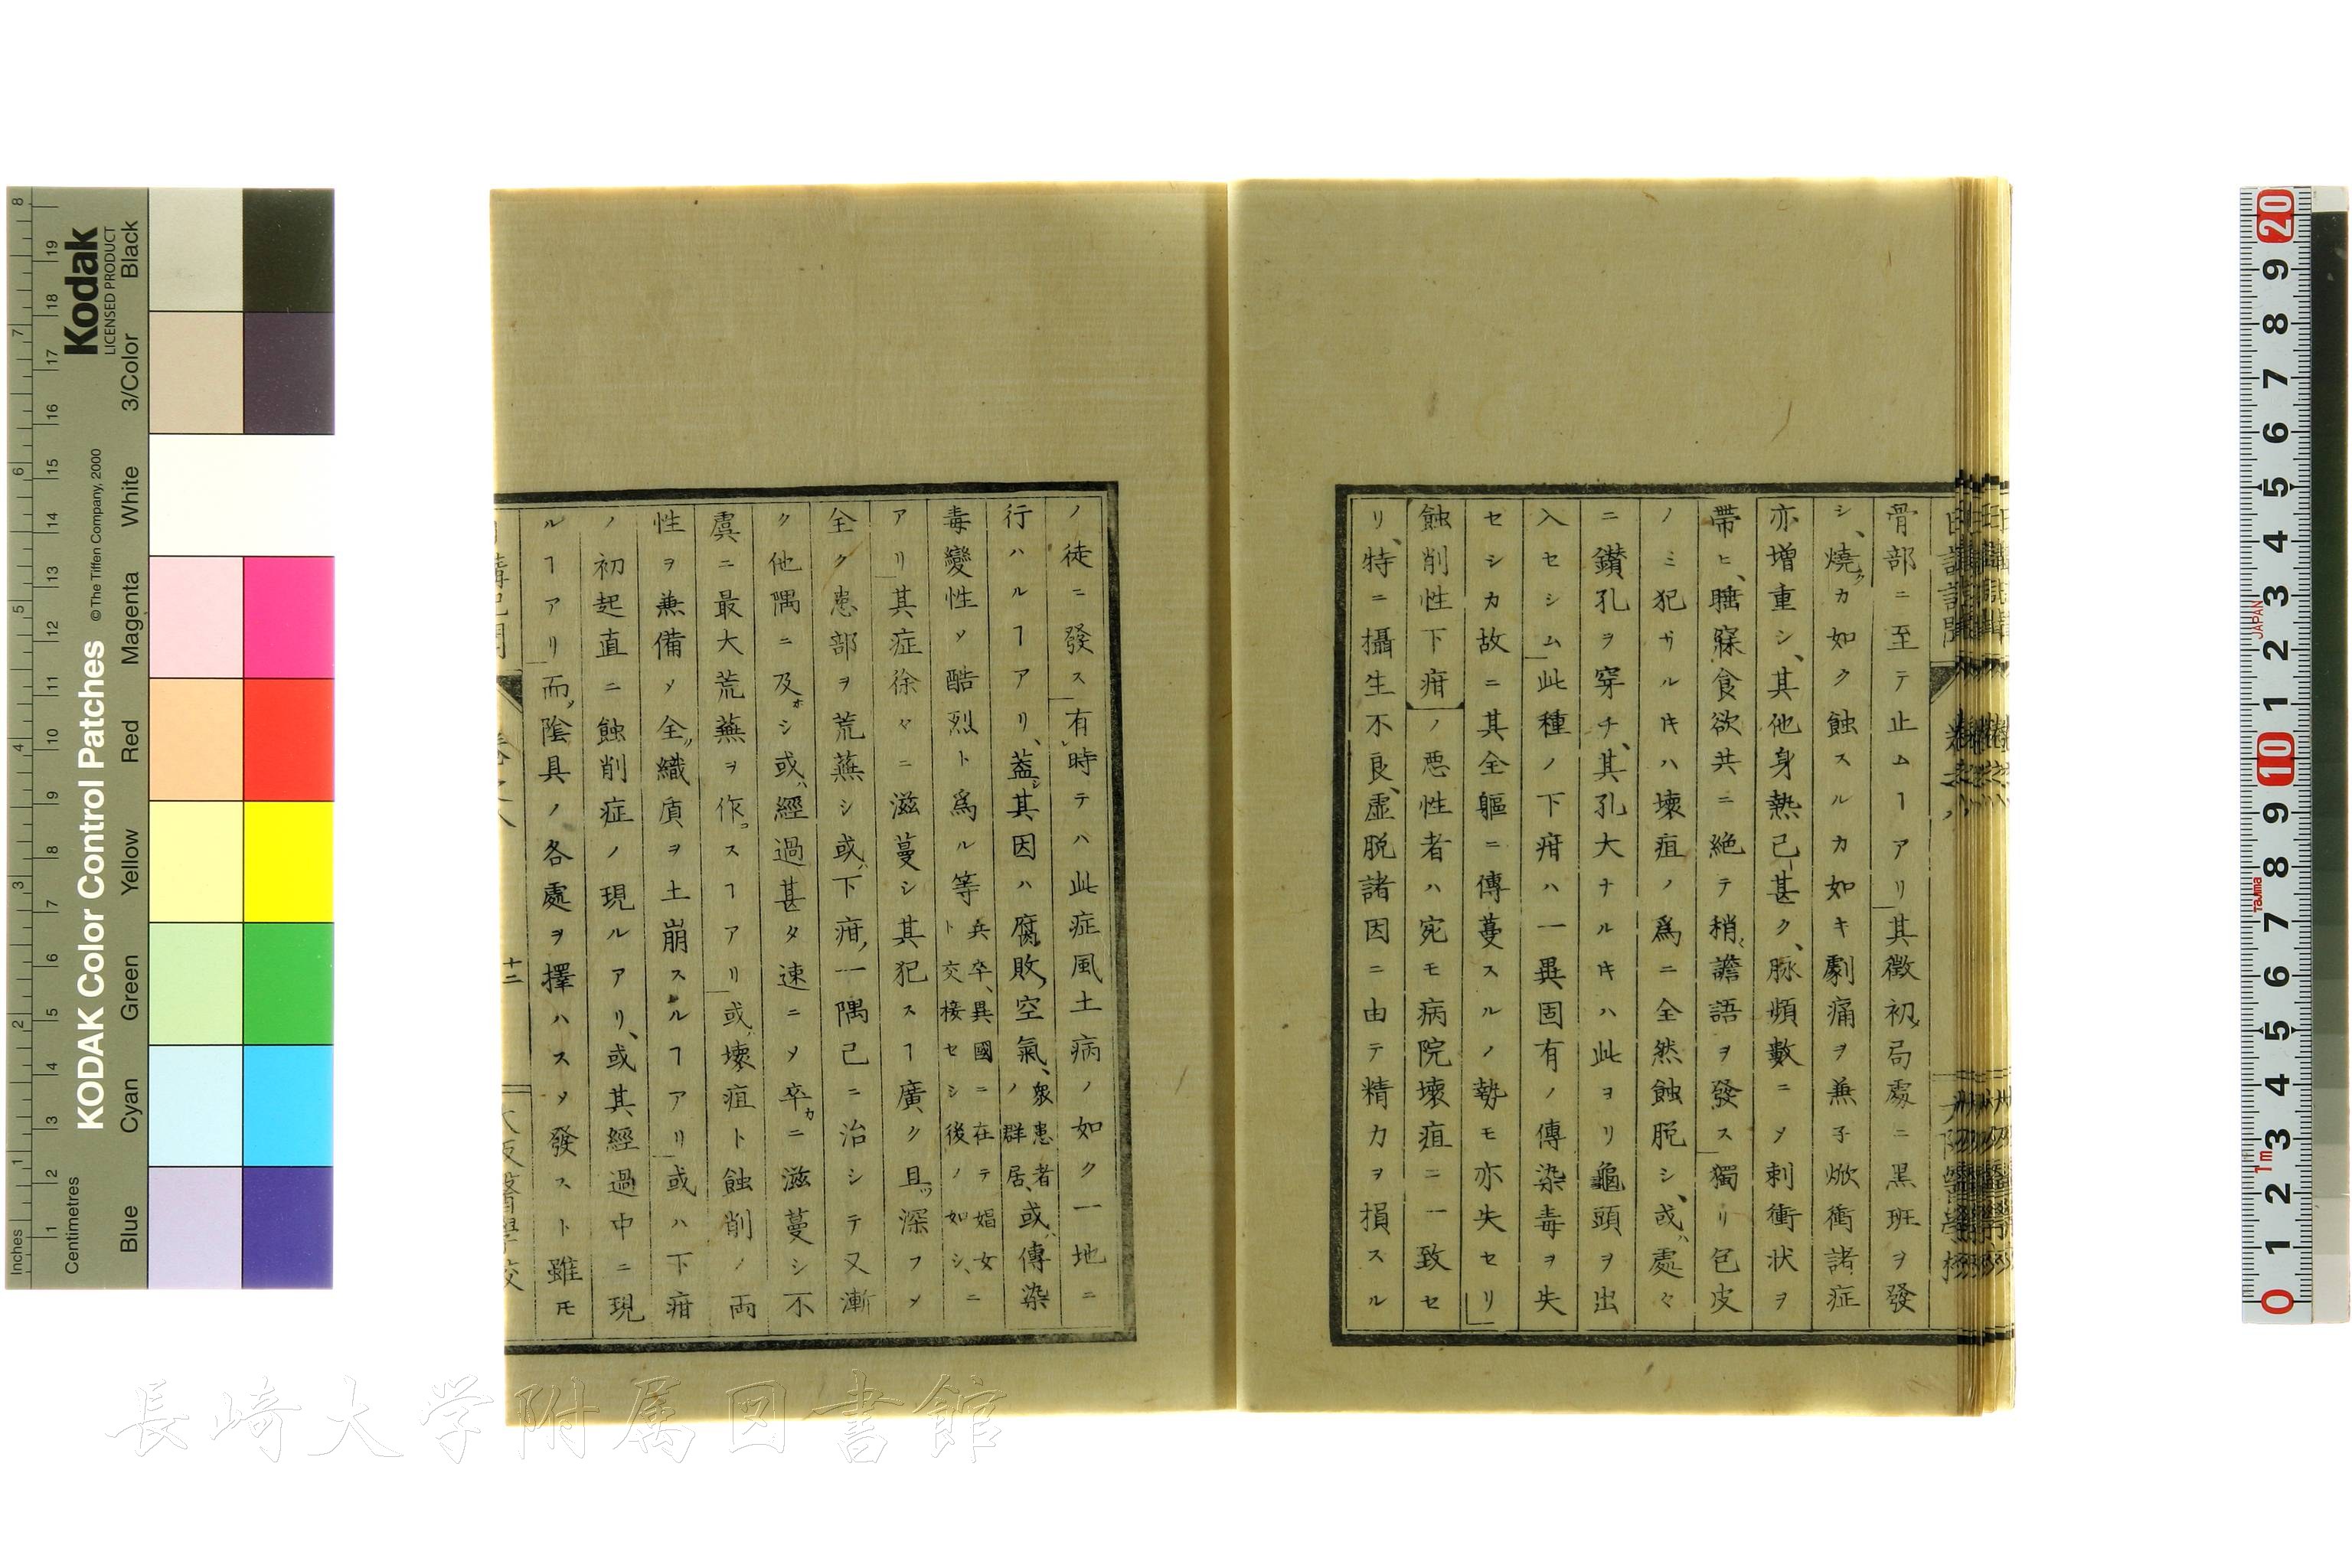 骨部ニ至テ止ムヿアリ其徴初メ局處ニ黒斑ヲ發
シ、燒クカ如ク蝕スルカ如キ劇痛ヲ兼子焮衝諸症
亦増重シ、其他身熱已甚ク、脉頻數ニメ刺衝状ヲ
帶ヒ、睡寐食欲共ニ絶テ稍譫語ヲ發ス獨リ包皮
ノミ犯サルルキハ壞疽ノ爲ニ全然蝕脱シ、或ハ處々
ニ鑚孔ヲ穿チ、其孔大ナルキハ此ヨリ龜頭ヲ出
入セシム此種ノ下疳ハ一異固有ノ傳染毒ヲ失
セシカ故ニ其全軀ニ傳蔓スルノ勢モ亦失セリ
蝕削性下疳ノ悪性者ハ宛モ病院壞疽ニ一致セ
リ、特ニ攝生不良、虚脱諸因ニ由テ精力ヲ損スル
ノ徒ニ發ス有時テハ此症風土病ノ如ク一地ニ
行ハルヿアリ、蓋シ其因ハ腐敗空氣、衆患者ノ群居、或ハ傳染
毒變性メ酷烈ト爲ル等兵卒、異國ニ在テ娼女ト交接セシ後ノ如シ、ニ
アリ其症徐々ニ滋蔓シ其犯スヿ廣ク且ツ深フメ
全ク患部ヲ荒蕪シ或ハ下疳ノ一隅已ニ治シテ又漸
ク他隅ニ及ホシ或ハ經過甚タ速ニメ卒カニ滋蔓シ不
虞ニ最大荒蕪ヲ作スヿアリ或ハ壞疽ト蝕削ノ両
性ヲ兼備メ全ク織質ヲ土崩スルヿアリ或ハ下疳
ノ初起直ニ蝕削症ノ現ルアリ、或其經過中ニ現
ルヿアリ而メ陰具ノ各處ヲ擇ハスメ發スト雖モ
十二
大阪醫學校
長崎大学附属図書館
Kodak
LICENSED PRODUCT
KODAK Color Control Patches
© The Tiffen Company, 2000
Inches
Centimetres
Blue Cyan Green Yellow Red Magenta White 3/Color Black
JAPAN
Tajima
1m